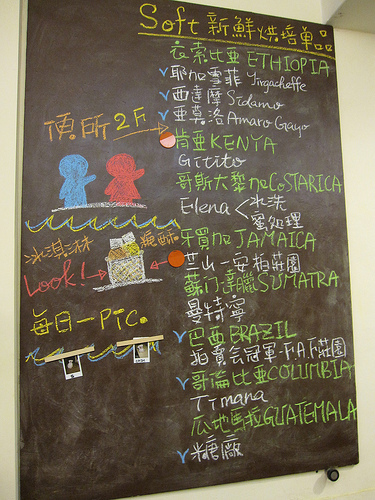 Soft 新鮮烘培單品
衣索比亞 ETHIOPIA
耶加雪菲 Yirgacheffe
西達摩 Sidamo
亞莫洛 Amaro Gayo
肯亞 KENYA
Gititο
哥斯大黎加 COSTARICA
Elena < 水洗
蜜処理
牙買加 JAMAICA
芒山－安柏莊園
蘇門答臘 SUMATRA
曼特寧
巴西 BRAZIL
拍賣会冠軍-F.A.F莊園
哥倫比亞 COLUMBIA
Timana
瓜地馬拉 GUATEMALA
米糖廠
頂所 2F
冰淇淋
Look!
每日一Pic.